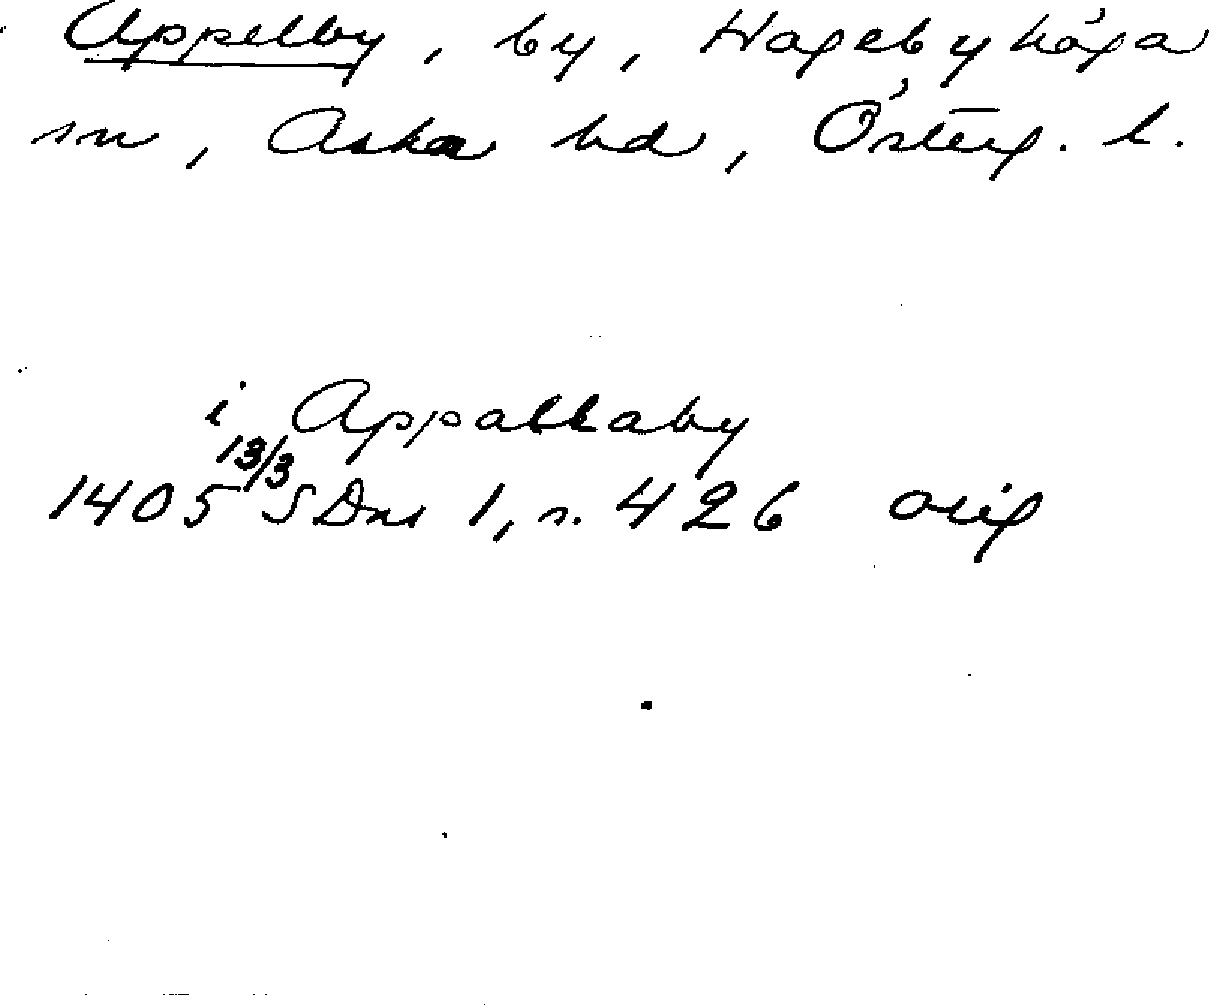 Appelby, by, Hagebyhöga
sn, Aska hd, Österg. l.
i Appallaby
1405 13/3 SDns 1, s. 426 orig